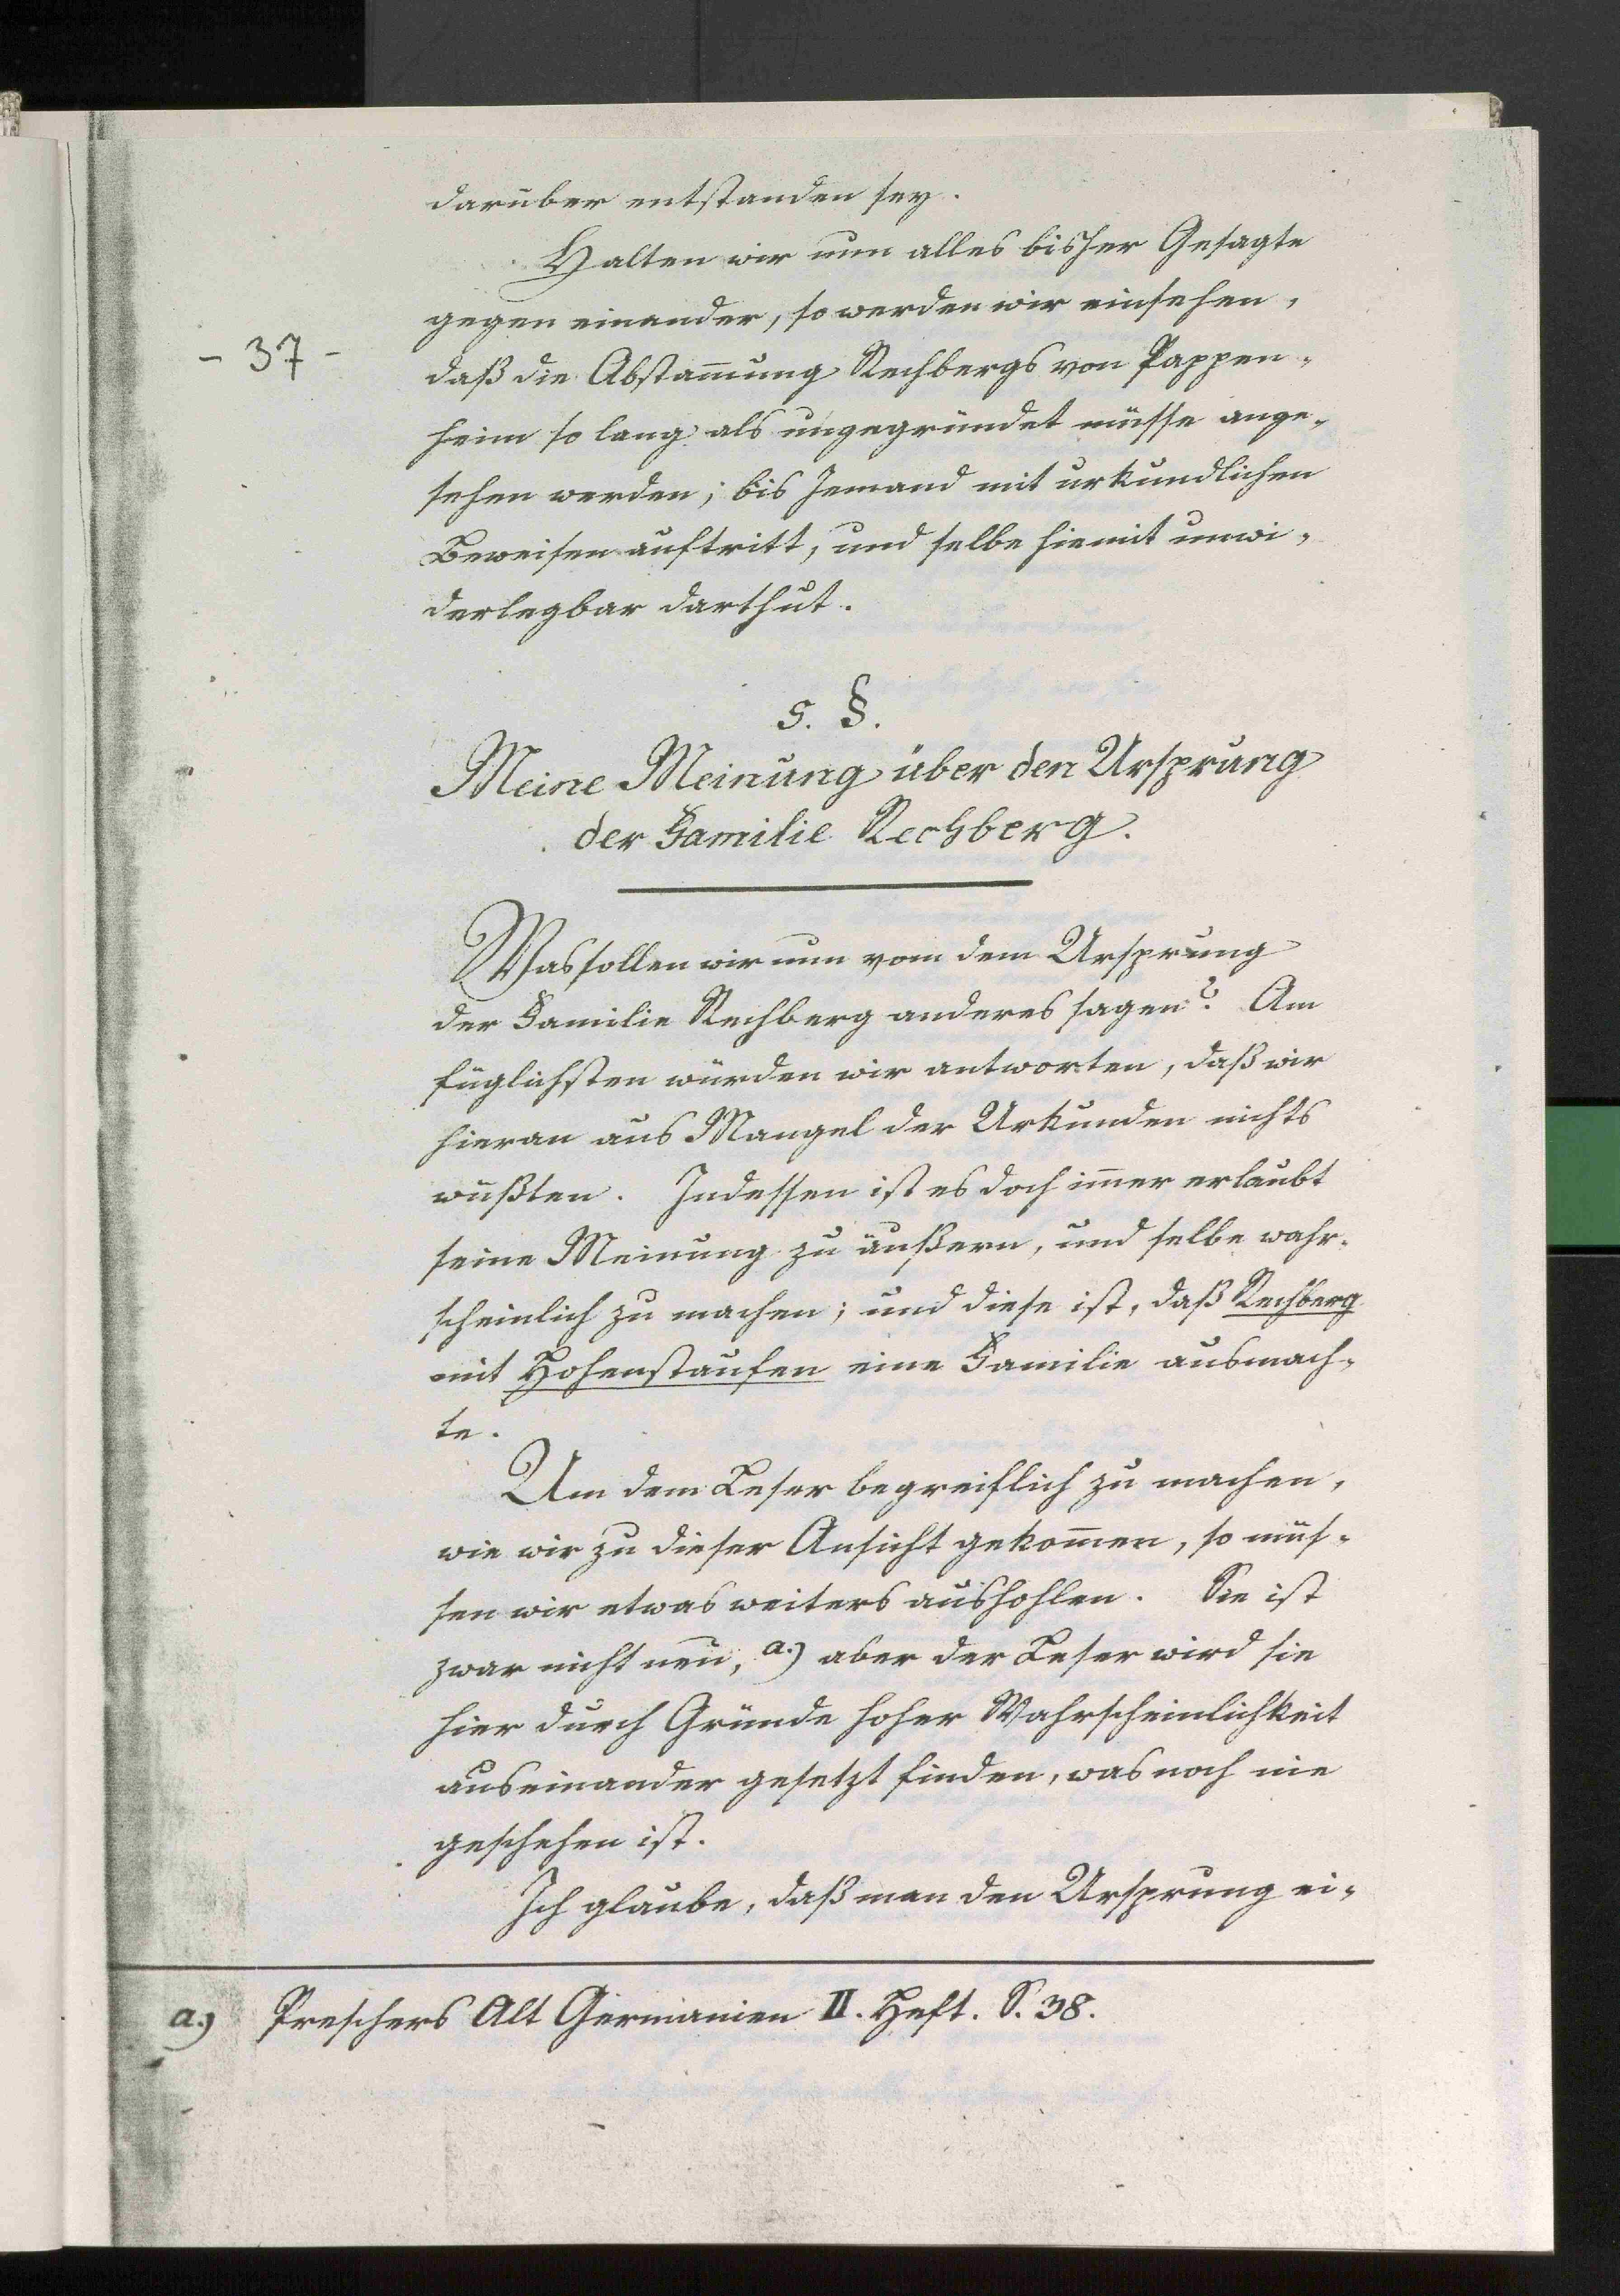 darüber entstanden sey.
Halten wir nun alles bisher Gesagte
gegen einander, so werden wir einsehen,
- 37 -
daß die Abstam̄ung Rechbergs von Pappen-
heim so lang als ungegründet müsse ange-
sehen werden; bis Jemand mit urkundlichen
Beweisen auftritt, und selbe hiemit unwi-
derlegbar darthut.
5. §.
Meine Meinung über den Ursprung
der Familie Rechberg.
Was sollen wir nun vom dem Ursprung
der Familie Rechberg anderes sagen? Am
füglichsten würden wir antworten, daß wir
hieran aus Mangel der Urkunden nichts
wüßten. Indessen ist es doch im̄er erlaubt
seine Meinung zu äußern, und selbe wahr-
scheinlich zu machen; und diese ist, daß Rechberg
mit Hohenstaufen eine Familie ausmach-
te.
Um dem Leser begreiflich zu machen,
wie wir zu dieser Ansicht gekom̄en, so müs-
sen wir etwas weiters aushohlen. Sie ist
zwar nicht neu, a.) aber der Leser wird sie
hier durch Gründe hoher Wahrscheinlichkeit
auseinander gesetzt finden, was noch nie
geschehen ist.
Ich glaube, daß man den Ursprung ei-
a.) Preschers Alt Germanien II. Heft. S. 38.